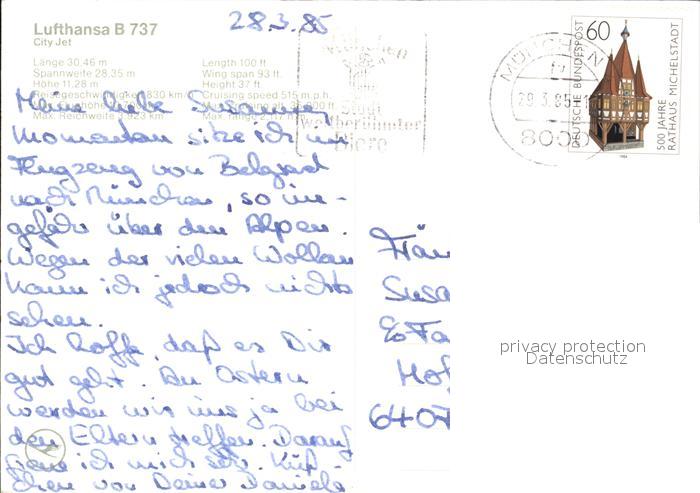 Lufthansa B 737
City Jet
28.3.85
Länge 30,46 m
Spannweite 28,35 m
Höhe 11,28 m
Length 100 ft.
Wing span 93 ft.
Height 37 ft.
Cruising speed 515 m.p.h.
Max. Reichweite 3.923 km
Meine liebe Susanne
Momentan sitze ich im
Flugzeug von Belgrad
nach München, so un-
gefähr über den Alpen.
Wegen der vielen Wolken
kann ich jedoch nichts
sehen.
Ich hoffe, daß es Dir
gut geht. An Ostern
werden wir uns ja bei
den Eltern treffen. Darauf
freue ich mich sehr. Küß-
chen von Deiner Daniela
München
Stadt
Weltberühmter
Biere
MÜNCHEN
29.3.85
8000
60
DEUTSCHE BUNDESPOST
500 JAHRE
RATHAUS MICHELSTADT
1984
Fräu
Susa
Hof
6407
privacy protection
Datenschutz